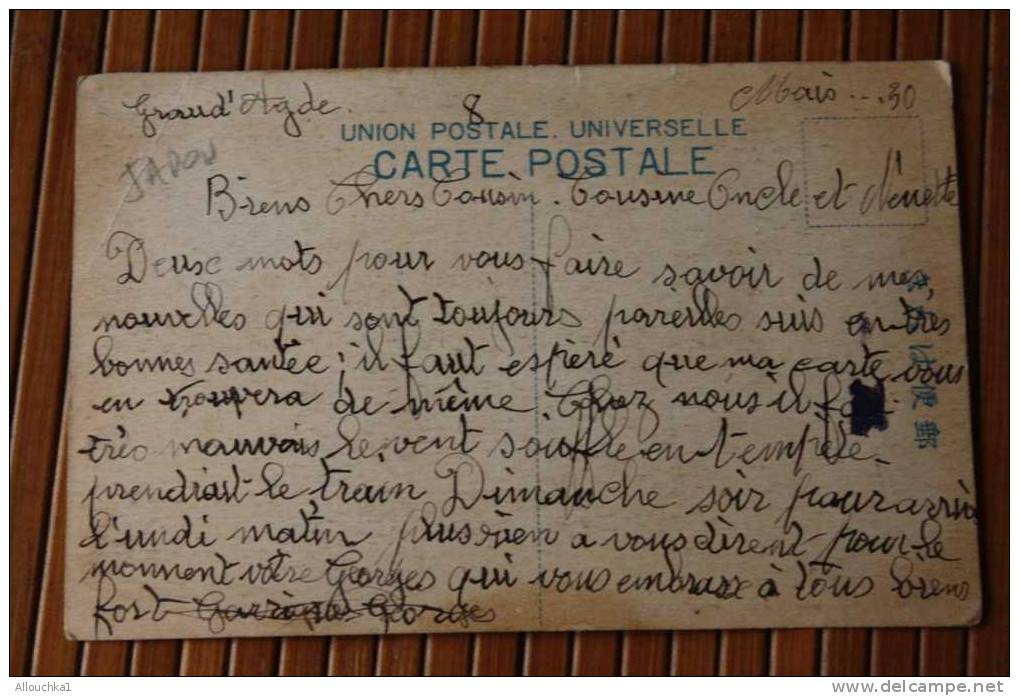 Grau d'Agde.
Mais ... 30
8
UNION POSTALE. UNIVERSELLE
CARTE POSTALE
JAPON
Biens Chers Cousin. Cousine Oncle et Nénette
Deuse mots pour vous faire savoir de mes,
nouvelles qui sont toujours pareilles suis en très
bonnes santée; il faut espéré que ma carte vous
en trouvera de même. Chez nous il fai
très mauvais le vent soiffle en tempête.
prendrait le train Dimanche soir pour arrivé
l'undi matin plus rien a vous dirent pour le
monnent votre Georges qui vous embrasse à tous biens
fort Georges
は便郵
Allouchka1
© delcampe.net